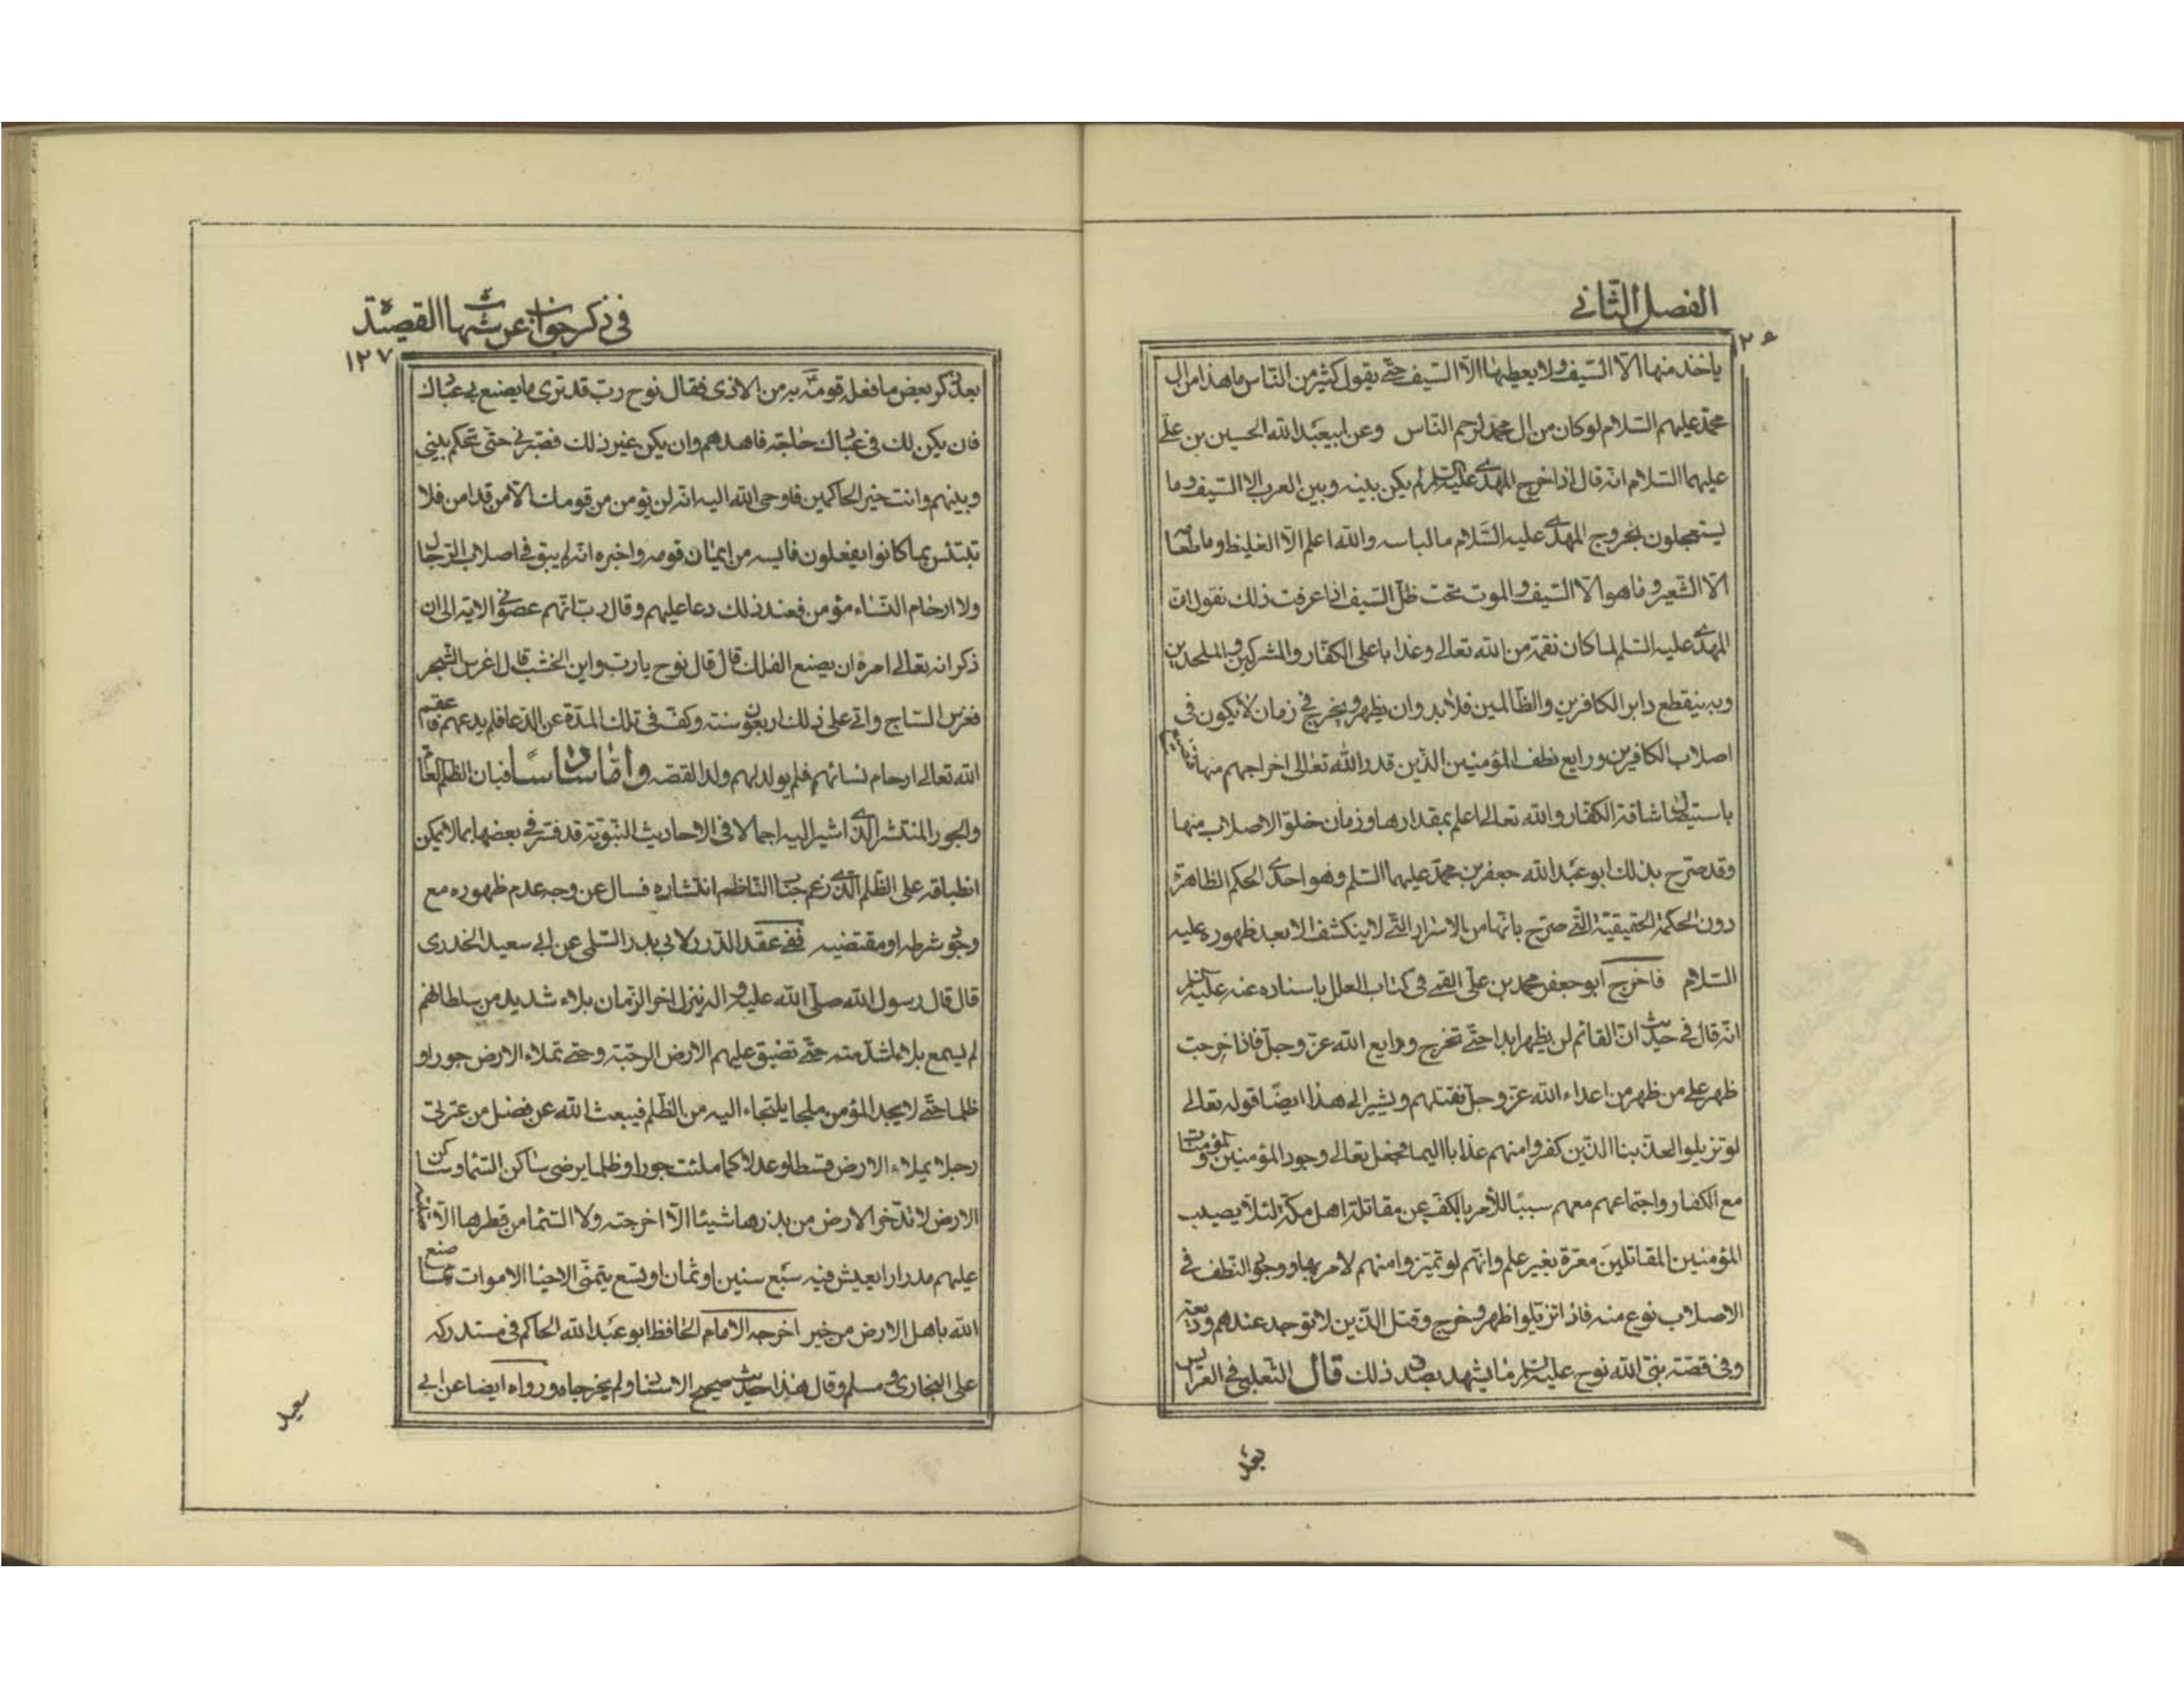 الفصل الثاني
ياخذ منها الا السيف ولا يعطيها الا السيف حتى يقول كثير من الناس ما هذا من ال
محمد عليهم السلام لو كان من ال محمد لرحم الناس وعن ابيعبد الله الحسين بن علي
عليهما السلام انه قال اذا خرج المهدي عليه السلم لم يكن بينه وبين العرب الا السيف وما
يستعجلون بخروج المهدي عليه السلام ما لباسه والله اعلم الا الغليظ وما طعامه
الا الشعير وما هو الا السيف والموت تحت ظل السيف اذا عرفت ذلك نقول ان
المهدي عليه السلم لما كان نقمة من الله تعالى وعذابا على الكفار والمشركين والملحدين
وبه ينقطع دابر الكافرين والظالمين فلا بد وان يظهر ويخرج في زمان لا يكون في
اصلاب الكافرين ودايع نطف المؤمنين الذين قدر الله تعالى اخراجهم منها
باستيصال شافة الكفار والله تعالى اعلم بمقدارها وزمان خلو الاصلاب منها
وقد صرح بذلك ابو عبد الله جعفر بن محمد عليهما السلم وهو احدى الحكم الظاهرة
دون الحكمة الحقيقية التي صرح بانها من الاسرار التي لا ينكشف الا بعد ظهوره عليه
السلام فاخرج ابو جعفر محمد بن علي القمي في كتاب العلل باسناده عنه عليه السلم
انه قال في حديث ان القائم لن يظهر ابدا حتى تخرج ودايع الله عز وجل فاذا خرجت
ظهر على من ظهر من اعداء الله عز وجل فقتلهم ويشير الى هذا ايضا قوله تعالى
لو تزيلوا لعذبنا الذين كفروا منهم عذابا اليما فجعل تعالى وجود المؤمنين والمؤمنات
مع الكفار واجتماعهم معهم سببا للأمر بالكف عن مقاتلة اهل مكة لئلا يصيب
المؤمنين المقاتلين معرة بغير علم وانهم لو تميزوا منهم لامر بها ووجود النطف في
الاصلاب نوع منه فاذا تزيلوا ظهر وخرج وقتل الذين لا توجد عندهم وديعة
وفي قصة نبي الله نوح عليه السلم ما يشهد بصدق ذلك قال الثعلبي في العرايس
بعد
في ذكر جواب عن شبهات القصيدة
١٢٧
بعد ذكر بعض ما فعل قومه به من الاذى فقال نوح رب قد ترى ما يصنع بي عبادك
فان يكن لك في عبادك حاجة فاهدهم وان يكن غير ذلك فصبرني حتى تحكم بيني
وبينهم وانت خير الحاكمين فاوحى الله اليه انه لن يؤمن من قومك الا من قد امن فلا
تبتئس بما كانوا يفعلون فايسه من ايمان قومه واخبره انه لم يبق في اصلاب الرجال
ولا ارحام النساء مؤمن فعند ذلك دعا عليهم وقال رب انهم عصوني الاية الى ان
ذكر انه تعالى امره ان يصنع الفلك قال قال نوح يا رب واين الخشب قال اغرس الشجر
فغرس الساج واتى على ذلك اربعون سنة وكف في تلك المدة عن الدعا فلم يدعهم فاعقم
الله تعالى ارحام نسائهم فلم يولد لهم ولد القصة واما سادسا فبان الظلم العام
والجور المنتشر الذي اشير اليه اجمالا في الاحاديث النبوية قد فسر في بعضها بما لا يمكن
انطباقه على الظلم الذي زعم جناب الناظم انتشاره فسال عن وجه عدم ظهوره مع
وجود شرطه او مقتضيه ففي عقد الدرر لابي بدر السلمي عن ابي سعيد الخدري
قال قال رسول الله صلى الله عليه واله ينزل اخر الزمان بلاء شديد من سلطانهم
لم يسمع بلاء اشد منه حتى تضيق عليهم الارض الرحبة وحتى تملاء الارض جورا و
ظلما حتى لا يجد المؤمن ملجا يلتجاء اليه من الظلم فيبعث الله عن فضل من عترتي
رجلا يملاء الارض قسطا وعدلا كما ملئت جورا وظلما يرضى ساكن السماء وساكن
الارض لا تدخر الارض من بذرها شيئا الا اخرجته ولا السما من قطرها الا
عليهم مدرارا يعيش فيه سبع سنين او ثمان او تسع يتمنى الاحيا الاموات مما صنع
الله باهل الارض من خير اخرجه الامام الحافظ ابو عبد الله الحاكم في مستدركه
على البخاري ومسلم وقال هذا حديث صحيح الاسناد ولم يخرجاه ورواه ايضا عن ابي
سعيد